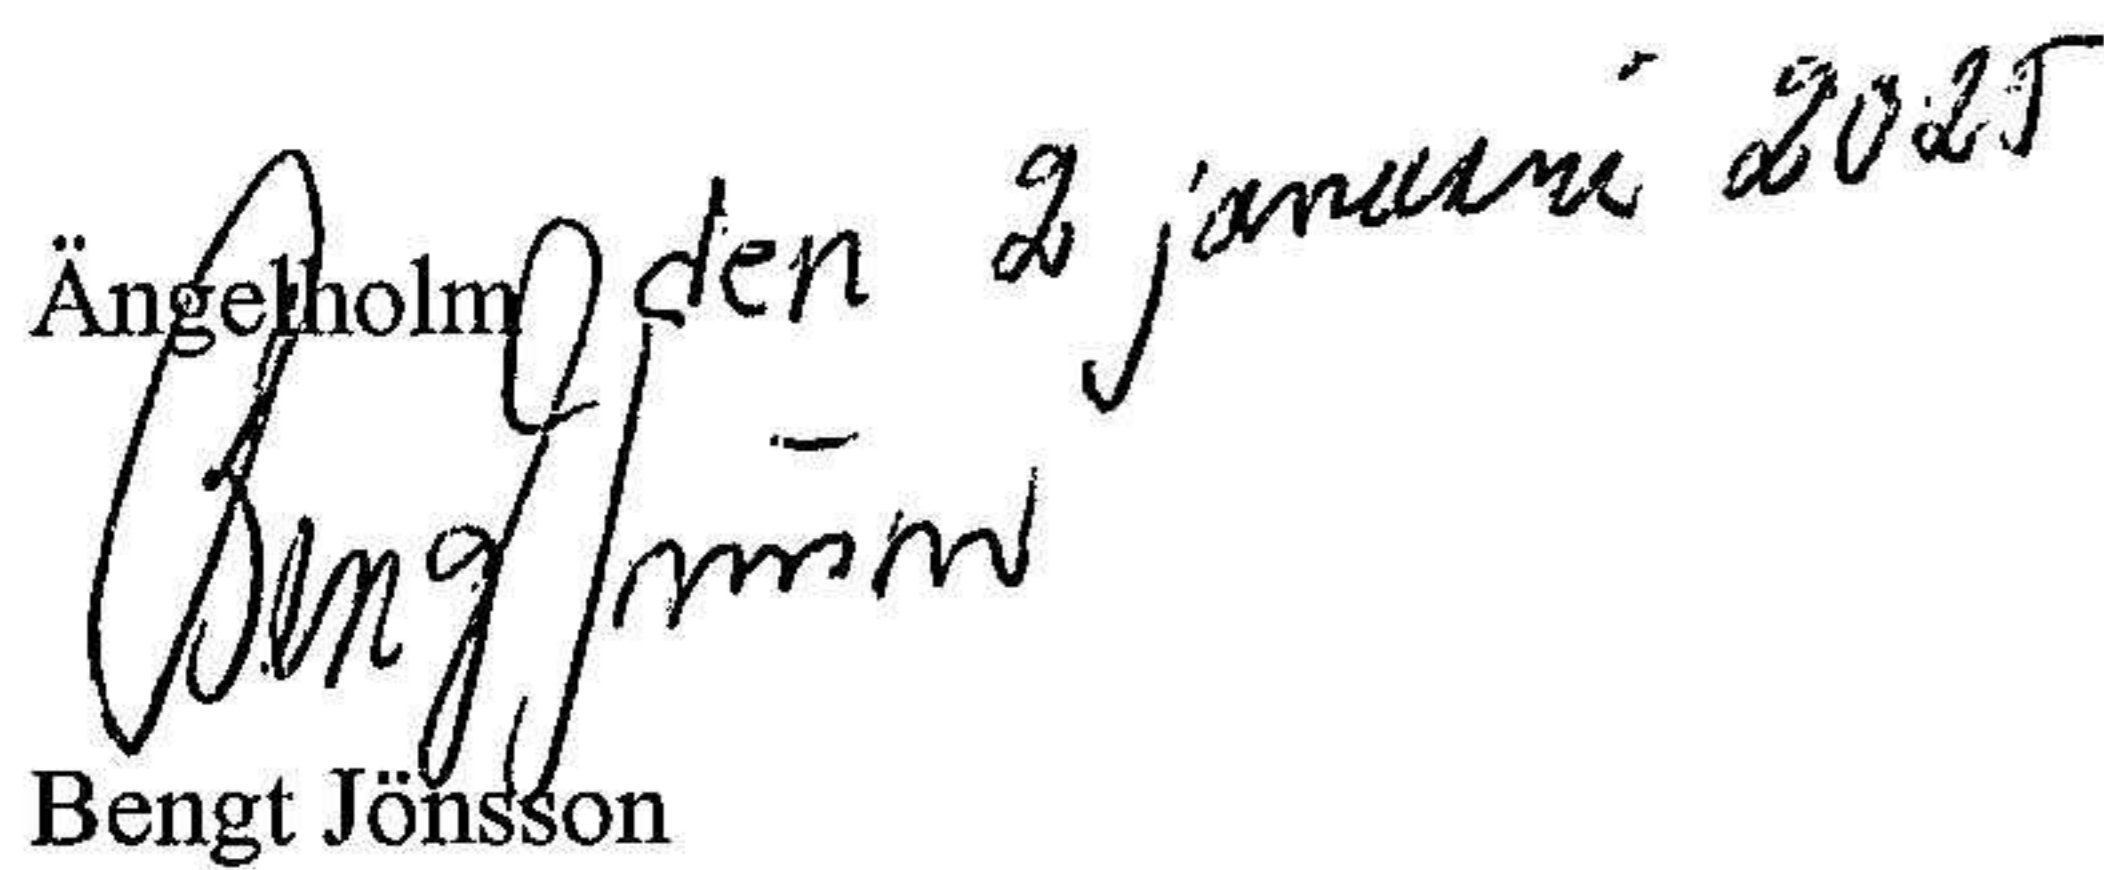 Ängelholm den 2 januari 2025
Bengt Jönsson
Bengt Jönsson